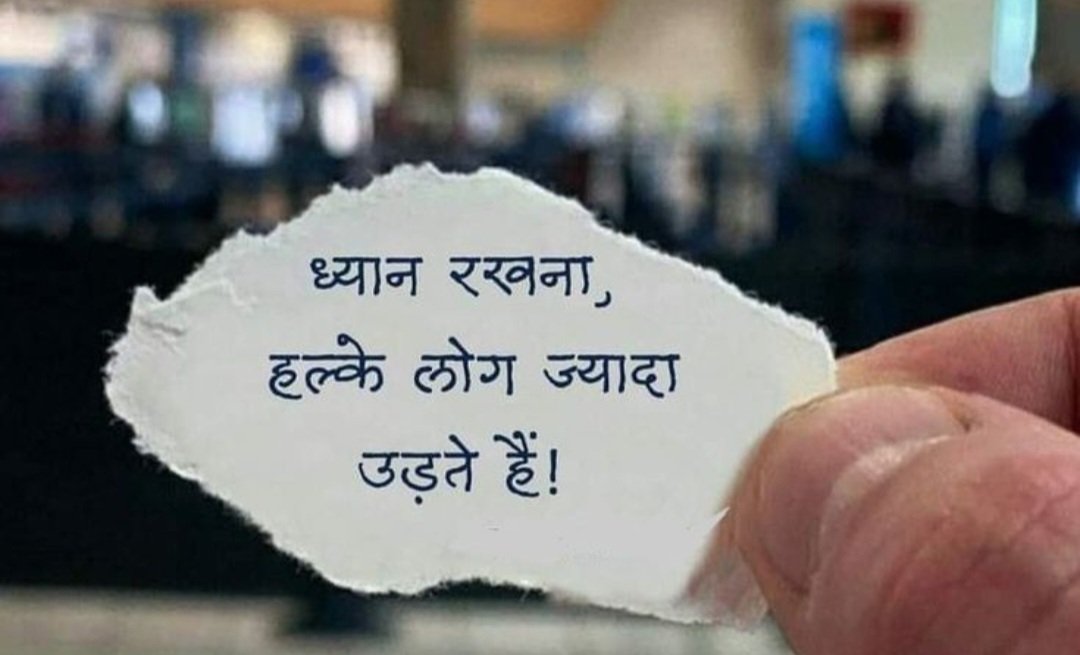 ध्यान रखना,
हल्के लोग ज्यादा
उड़ते हैं!